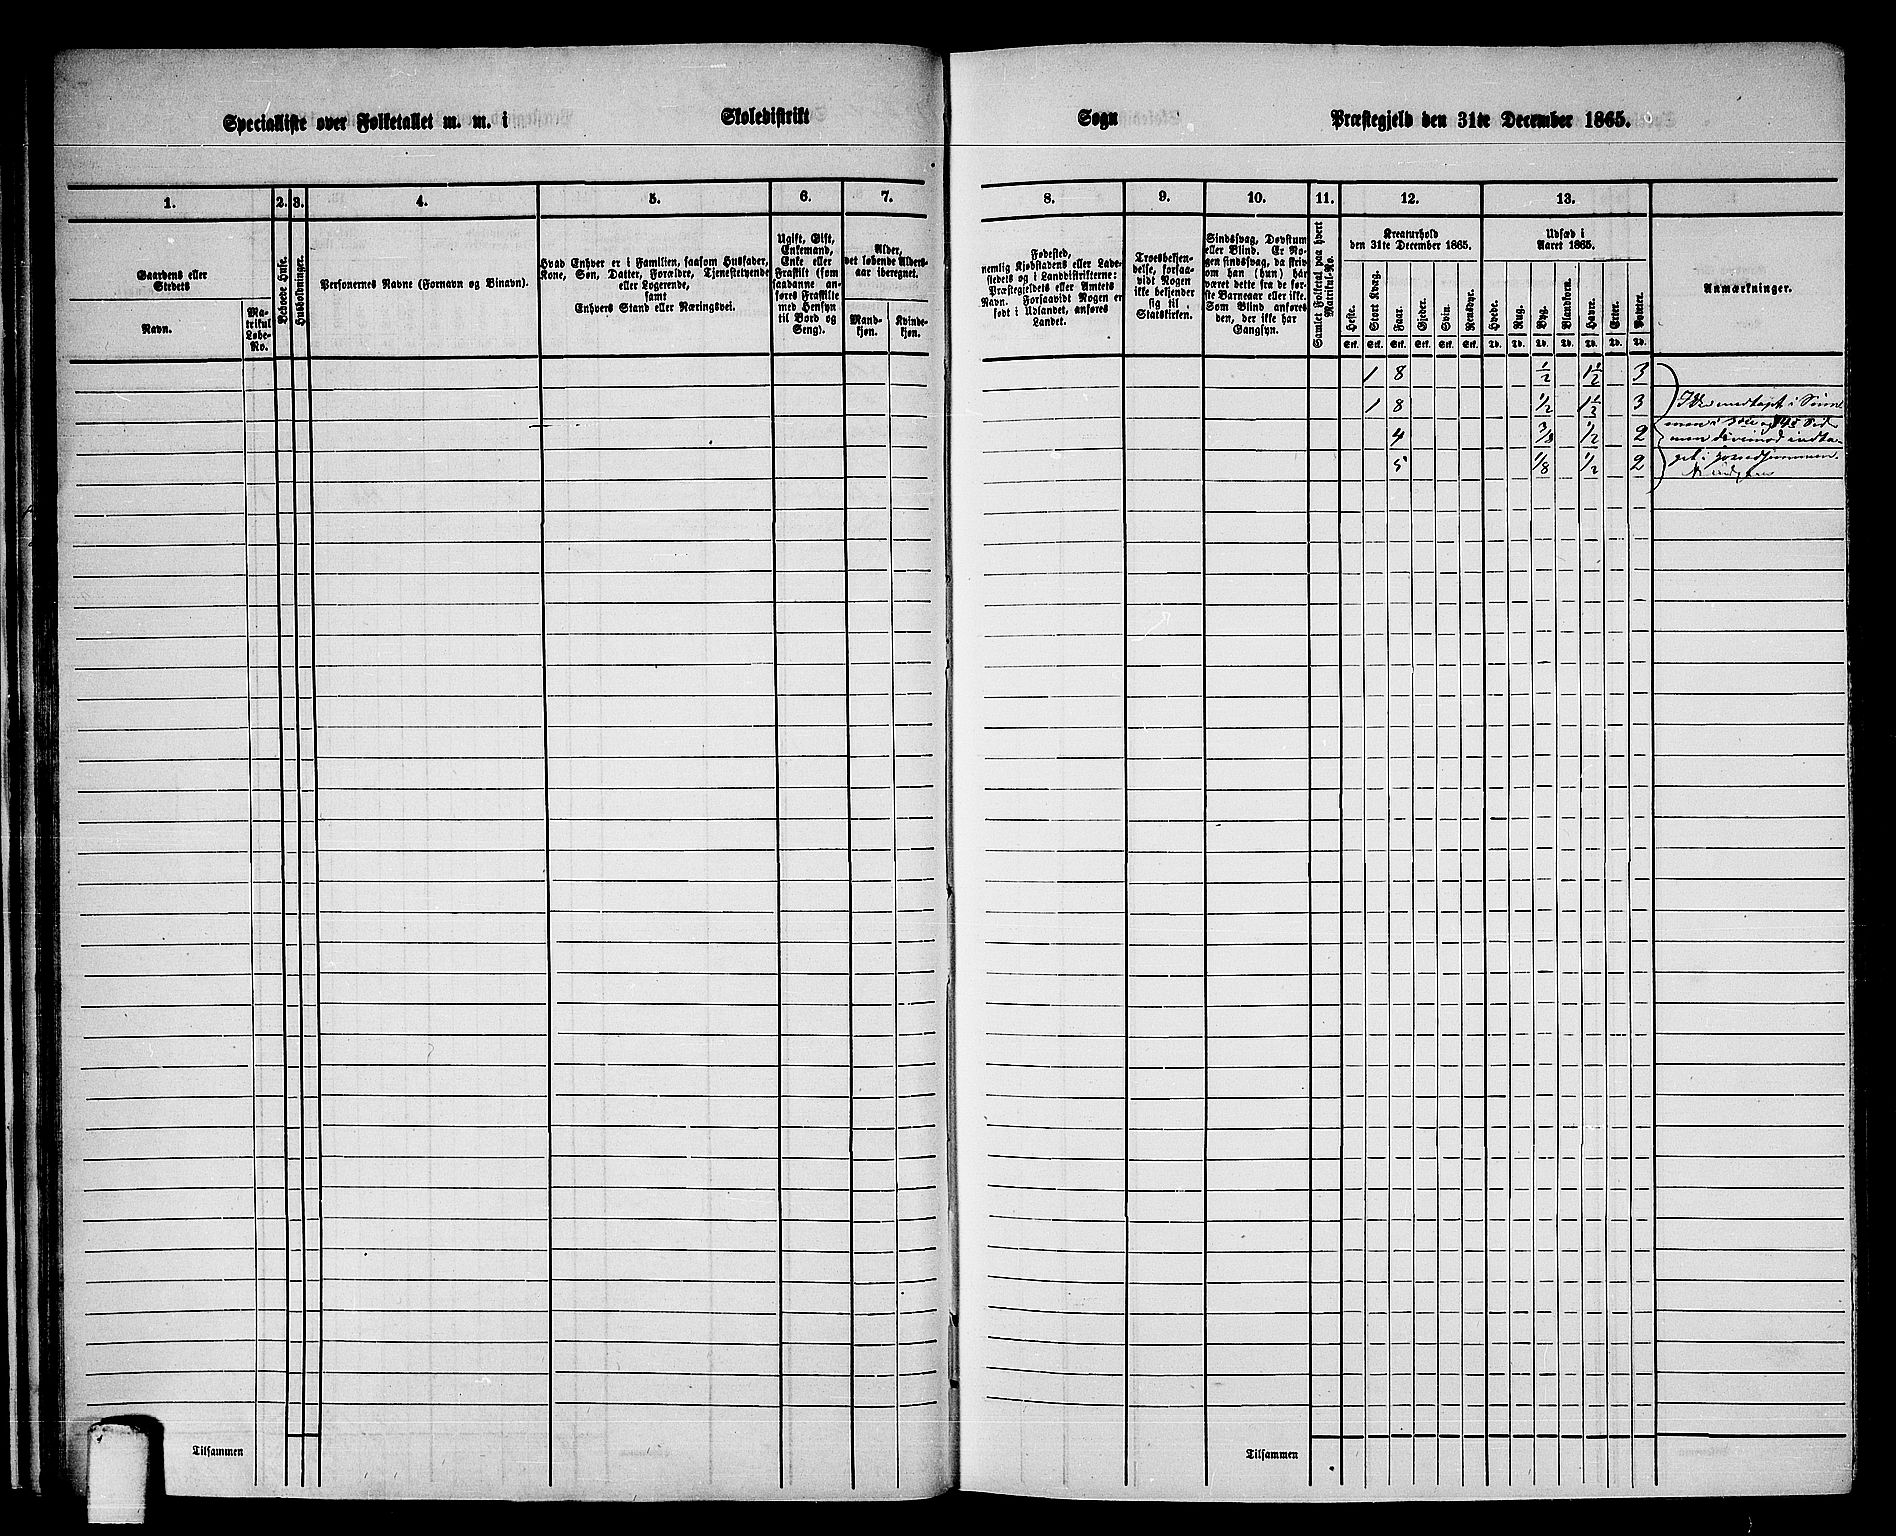 Specialliste over Folketallet m. m. i Skoledistrikt Sogn Præstegjeld den 31te December 1865.
1. 2. 3. 4. 5. 6. 7. 8. 9. 10. 11. 12. 13.
Gaardens eller
Stedets
Navn.
Matrikul
Løbe-
No.
Beboede Huse.
Husholdninger.
Personernes Navne (Fornavn og Binavn).
Hvad Enhver er i Familien, saasom Husfader,
Kone, Søn, Datter, Forældre, Tjenestetyende
eller Logerende,
samt
Enhvers Stand eller Næringsvei.
Ugift, Gift,
Enkemand,
Enke eller
Fraskilt (som
saadanne an-
føres Fraskilte
med Hensyn
til Bord og
Seng).
Alder,
det løbende Alders-
aar iberegnet.
Mand-
kjøn.
Kvinde-
kjøn.
Fødested,
nemlig Kjøbstadens eller Lade-
stedets og i Landdistrikterne:
Præstegjeldets eller Amtets
Navn. Forsaavidt Nogen er
født i Udlandet, anføres
Landet.
Troesbekjen-
delse, forsaa-
vidt Nogen
ikke bekjender
sig til
Statskirken.
Sindssvag, Døvstum
eller Blind. Er No-
gen sindssvag, da skriv
om han (hun) har
været dette fra de før-
ste Barneaar eller ikke.
Som Blind anføres
den, der ikke har
Gangsyn.
Samlet Folketal paa hvert
Matrikul-No.
Kreaturhold
den 31te December 1865.
Heste. Stort Kvæg. Faar. Gjeder. Svin. Rensdyr.
Stk. Stk. Stk. Stk. Stk. Stk.
Udsæd i
Aaret 1865.
Hvede. Rug. Byg. Blandkorn. Havre. Erter. Poteter.
Td. Td. Td. Td. Td. Td. Td.
Anmærkninger.
1 8 1/2 1 1/2 3
1 8 1/2 1 1/2 3 Ikke medtaget i
4 3/8 1/2 2
5 1/8 1/2 2
Tilsammen Tilsammen